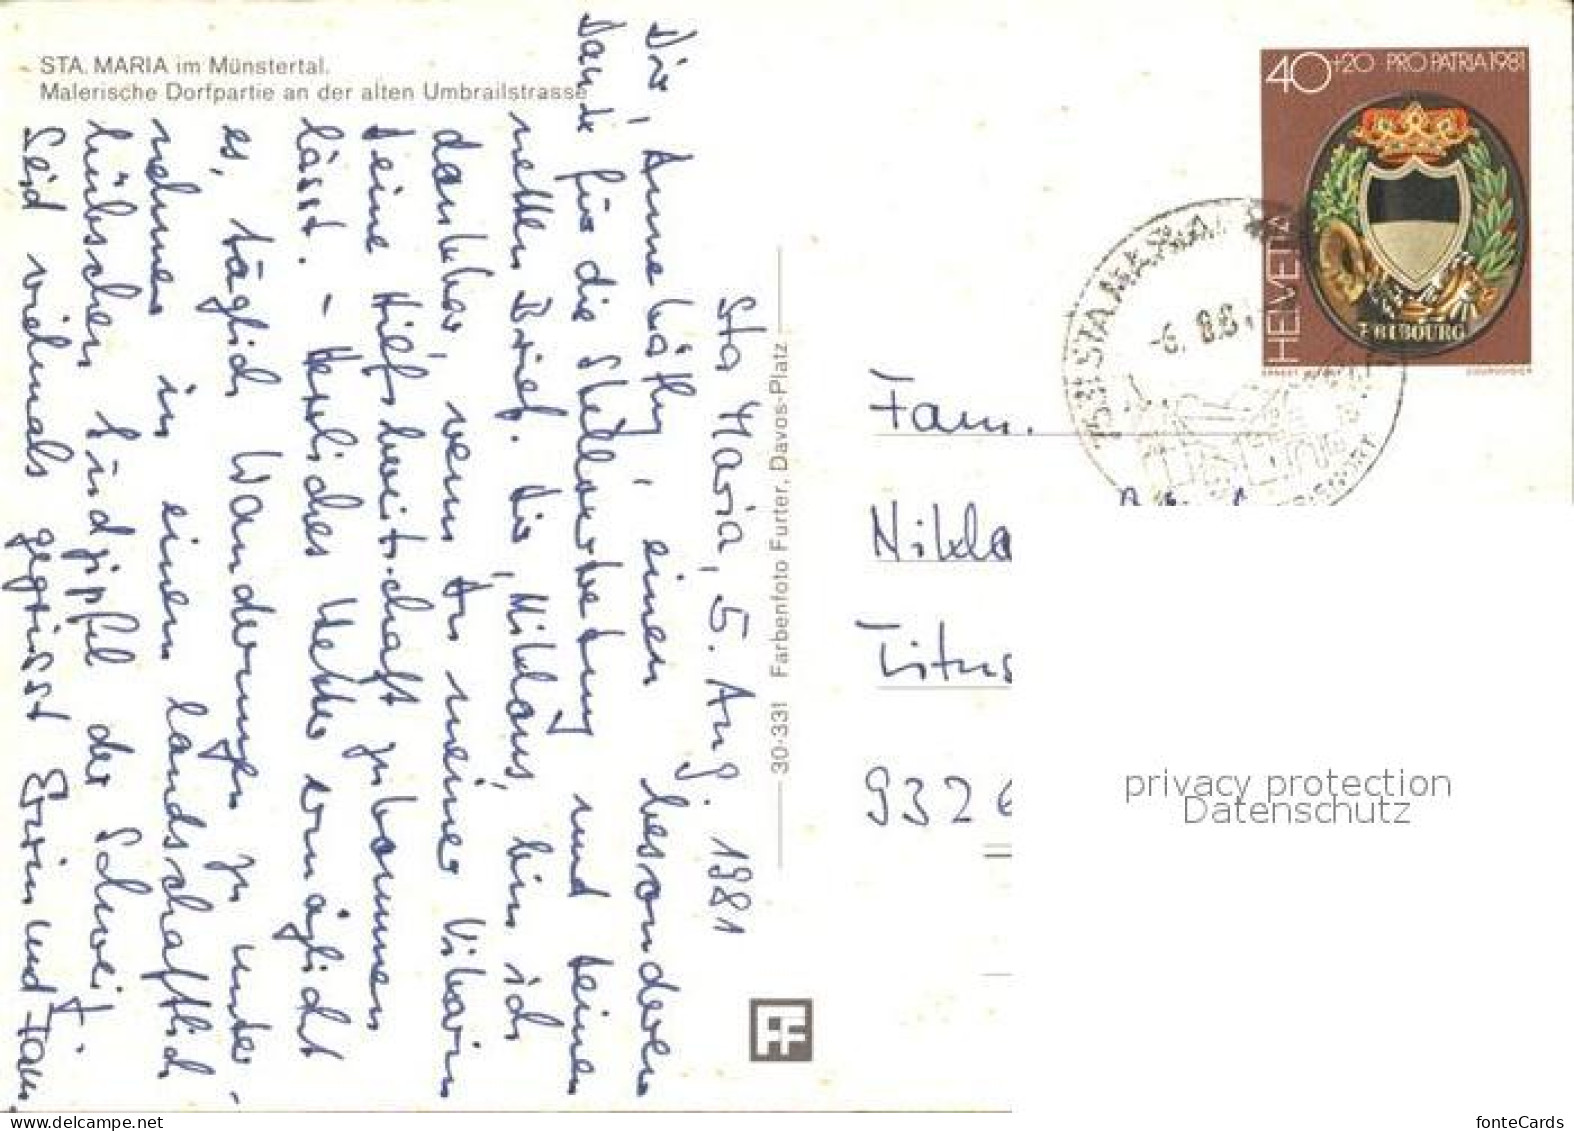 STA. MARIA im Münstertal.
Malerische Dorfpartie an der alten Umbrailstrasse
Sta Maria, 5. Aug. 1981
Dir, Annekäthy, einen besonderen
Dank für die Stellvertretung und Deinen
netten Brief. Dir, Niklaus, bin ich
dankbar, wenn Du meiner Vikarin
Deine Hilfsbereitschaft zukommen
lässt. - Herrliches Wetter ermöglicht
es, täglich Wanderungen zu unter-
nehmen in einem landschaftlich
hübschen Südzipfel der Schweiz.
Seid vielmals gegrüsst Erwin und Fam
30-331 Farbenfoto Furter, Davos-Platz
FF
40+20 PRO PATRIA 1981
HELVETIA
FRIBOURG
COURVOISIER
STA. MARIA
-6. 8.81
Fam.
Nikla
Titus
9326
privacy protection
Datenschutz
www.delcampe.net
fonteCards